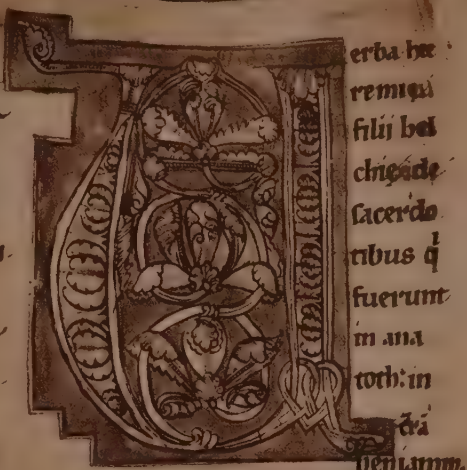 erba hie
remiȩ
filij hel
chięde
sacerdo
tibus q
fuerunt
in ana
toth: in
trā
beniamin